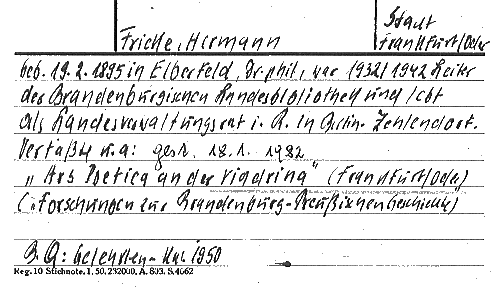 Stadt
Fricke, Hermann Frankfurt/Oder
geb. 19.2.1895 in Elberfeld, Dr. phil., war 1932/1942 Leiter
der Brandenburgischen Landesbibliothek und lebt
als Landesverwaltungsrat i. R. in Berlin-Zehlendorf.
Verfaßte u.a: gest. 18.1. 1982
„Ars Poetica an der Viadrina" (Frankfurt/Oder)
(„Forschungen zur Brandenburg-Preußischen Geschichte)
B. Q: Gelehrten-Kal. 1950
Reg. 10 Stichnote, 1, 50, 232000, A. 803. S. 4662